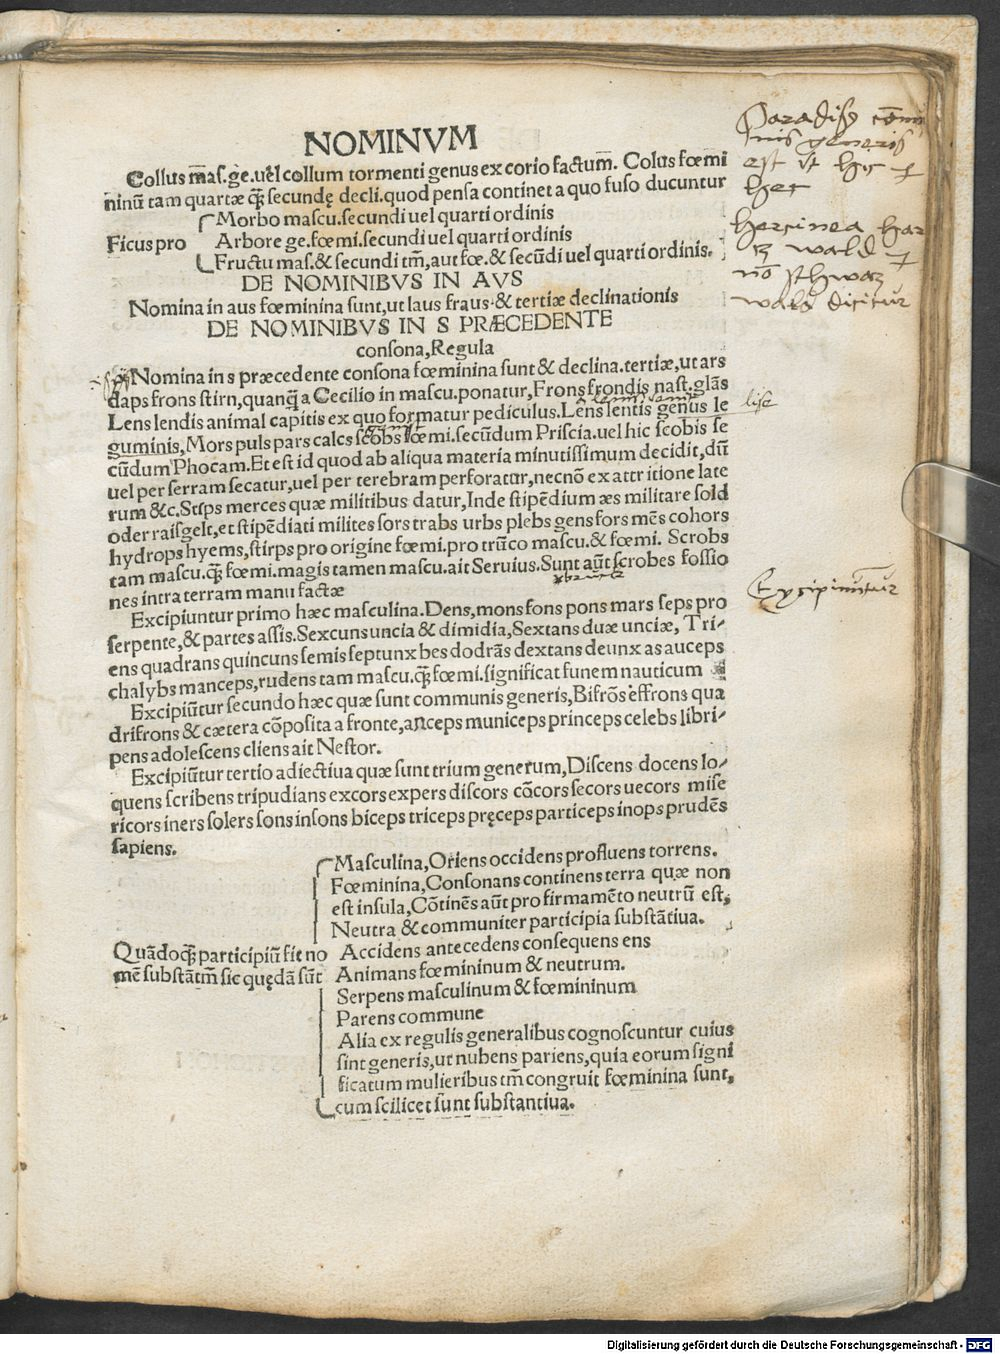 NOMINVM
Collus mas̄.ge.uel collum tormenti genus ex corio factum̄. Colus fœmi
ninū tam quartæ q̄ꝫ secundę decli.quod pensa continet a quo fuso ducuntur
Morbo mascu.secundi uel quarti ordinis
Ficus pro Arbore ge.fœmi.secundi uel quarti ordinis
Fructu mas.& secundi tm̄,aut fœ.& secūdi uel quarti ordinis.
DE NOMINIBVS IN AVS
Nomina in aus fœminina sunt,ut laus fraus & tertiæ declinationis
DE NOMINIBVS IN S PRÆCEDENTE
consona,Regula
Nomina in s præcedente consona fœminina sunt & declina.tertiæ,ut ars
daps frons stirn,quanq̄ a Cecilio in mascu.ponatur,Frons frondis nast.glās
Lens lendis animal capitis ex quo formatur pediculus.Lens lentis genus le
guminis,Mors puls pars calcs scobs fœmi.secūdum Priscia.uel hic scobis se
cūdum Phocam.Et est id quod ab aliqua materia minutissimum decidit,dū
uel per serram secatur,uel per terebram perforatur,necnō ex attritione late
rum &c.Stips merces quæ militibus datur,Inde stipēdium æs militare sold
oder raisgelt,et stipēdiati milites sors trabs urbs plebs gens fors mēs cohors
hydrops hyems,stirps pro origine fœmi.pro trūco mascu.& fœmi. Scrobs
tam mascu.q̄ꝫ fœmi.magis tamen mascu.ait Seruius.Sunt aūt scrobes fossio
nes intra terram manu factæ
Excipiuntur primo hæc masculina.Dens,mons fons pons mars seps pro
serpente,& partes assis.Sexcuns uncia & dimidia,Sextans duæ unciæ, Tri-
ens quadrans quincuns semis septunx bes dodrās dextans deunx as auceps
chalybs manceps,rudens tam mascu.q̄ꝫ fœmi.significat funem nauticum
Excipiūtur secundo hæc quæ sunt communis generis,Bifrōs effrons qua
drifrons & cætera cōposita a fronte,anceps municeps princeps celebs libri-
pens adolescens cliens ait Nestor.
Excipiūtur tertio adiectiua quæ sunt trium generum,Discens docens lo-
quens scribens tripudians excors expers discors cōcors secors uecors mise
ricors iners solers sons insons biceps triceps pręceps particeps inops prudēs
sapiens.
Masculina,Oriens occidens profluens torrens.
Fœminina,Consonans continens terra quæ non
est insula,Cōtinēs aūt pro firmamēto neutrū est,
Neutra & communiter participia substātiua.
Quādoqꝫ participiū fit no Accidens antecedens consequens ens
mē substātm̄ sic quędā sūt Animans fœmininum & neutrum.
Serpens masculinum & fœmininum
Parens commune
Alia ex regulis generalibus cognoscuntur cuius
sint generis,ut nubens pariens,quia eorum signi
ficatum mulieribus tm̄ congruit fœminina sunt,
cum scilicet sunt substantiua.
Paradiss
generis
est
hec
hercinea har
wald
wald dicitur
lise
Excipiuntur
Digitalisierung gefördert durch die Deutsche Forschungsgemeinschaft - DFG